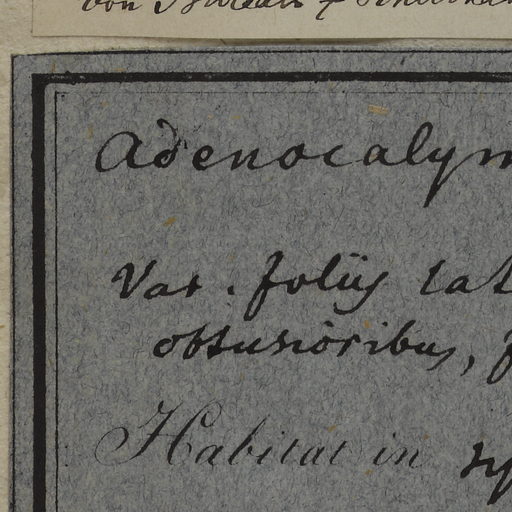 von
Adenocalym
Var. foliis lat
obtusioribus, f
Habitat in sy